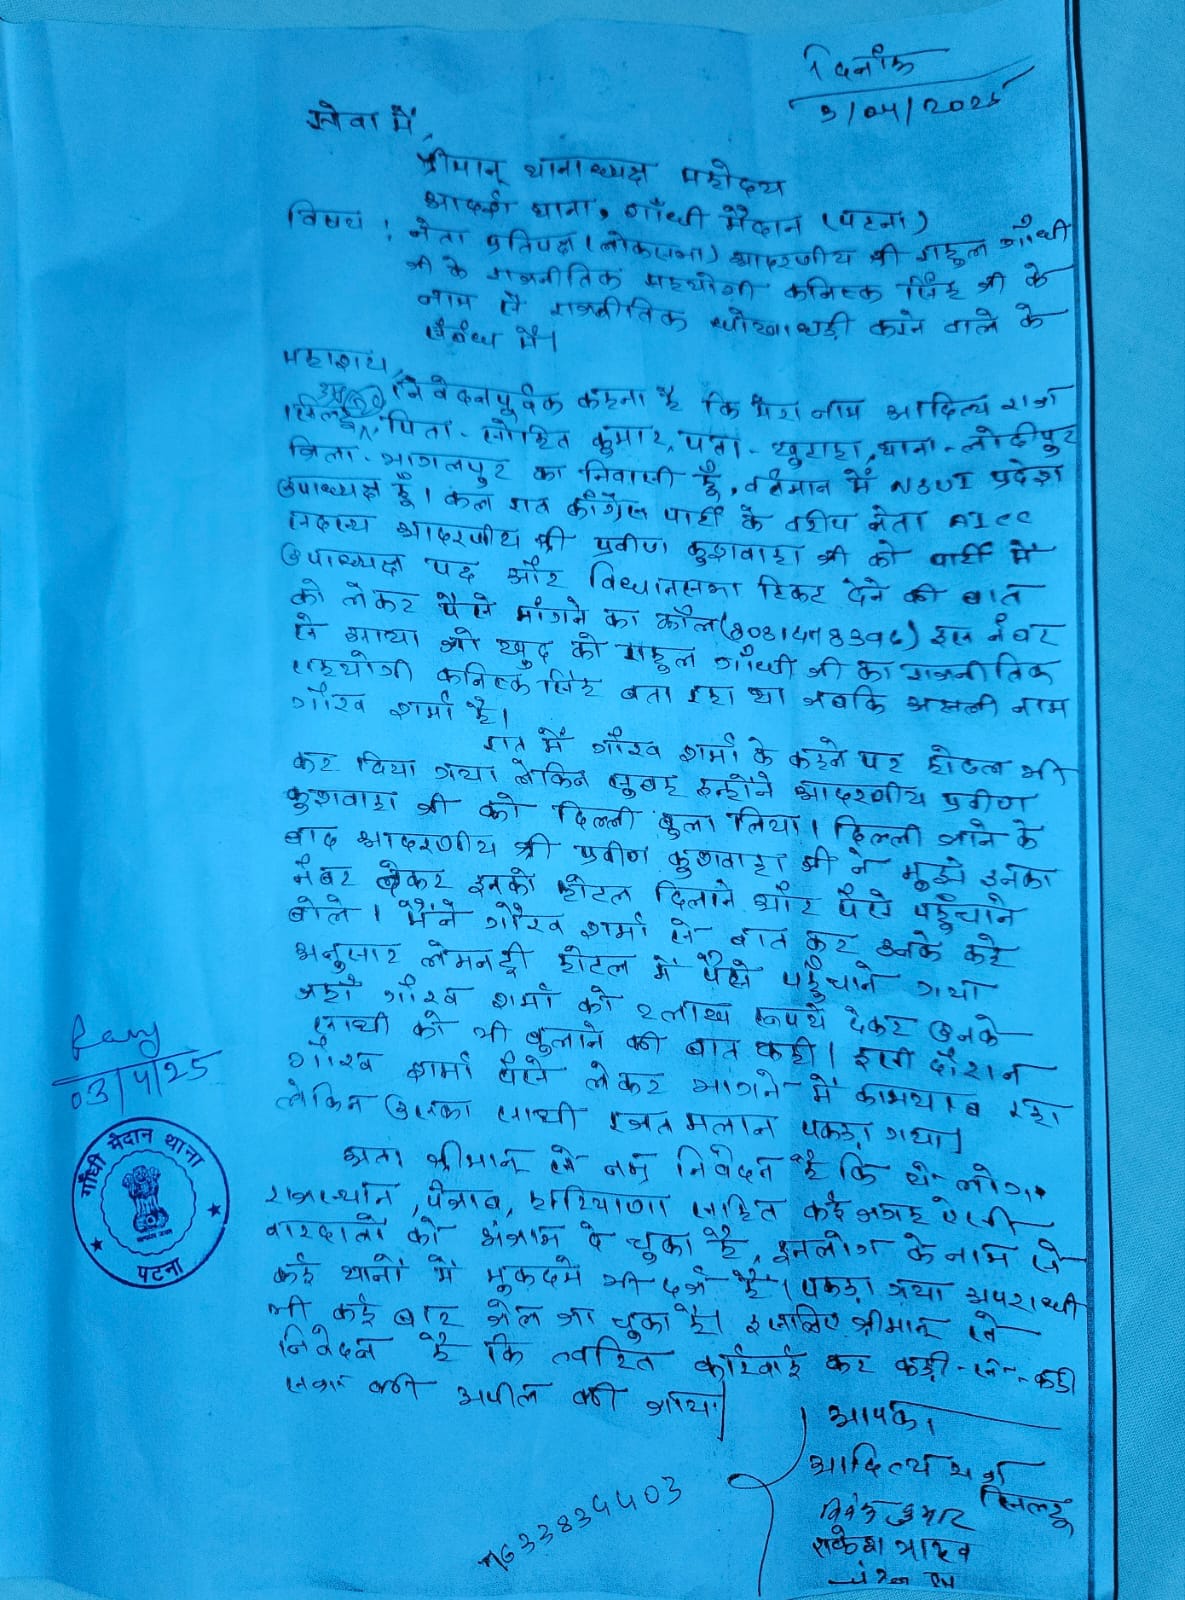 दिनाँक
3/04/2025
सेवा में,
श्रीमान् थानाध्यक्ष महोदय
आदर्श थाना, गाँधी मैदान (पटना)
विषय : नेता प्रतिपक्ष (लोकसभा) आदरणीय श्री राहुल गाँधी
जी के राजनीतिक सहयोगी कनिष्क सिंह जी के
नाम से राजनीतिक धोखाधड़ी करने वाले के
संबंध में।
महाशय,
निवेदनपूर्वक कहना है कि मेरा नाम आदित्य राज
पिता - लोहित कुमार, पता - खुराहा, थाना - लोदीपुर
जिला - भागलपुर का निवासी हूँ, वर्तमान में NSUI प्रदेश
उपाध्यक्ष हूँ। कल रात काँग्रेस पार्टी के वरीय नेता AICC
सदस्य आदरणीय श्री प्रवीण कुशवाहा जी को पार्टी में
उपाध्यक्ष पद और विधानसभा टिकट देने की बात
को लेकर पैसे मांगने का कॉल इस नंबर
से आया जो खुद को राहुल गाँधी जी का राजनीतिक
सहयोगी कनिष्क सिंह बता रहा था जबकि असली नाम
गौरव शर्मा है।
रात में गौरव शर्मा के कहने पर होटल भी
कर दिया गया लेकिन सुबह इन्होंने आदरणीय प्रवीण
कुशवाहा जी को दिल्ली बुला लिया। दिल्ली जाने के
बाद आदरणीय श्री प्रवीण कुशवाहा जी ने मुझे इनका
नंबर देकर इनको होटल दिलाने और पैसे पहुँचाने
बोले। मैंने गौरव शर्मा से बात कर उनके कहे
अनुसार लेमनट्री होटल में पैसे पहुँचाने गया
जहाँ गौरव शर्मा को 2 लाख रूपये देकर उनके
साथी को भी बुलाने की बात कही। इसी दौरान
गौरव शर्मा पैसे लेकर भागने में कामयाब रहा
लेकिन उसका साथी रजत मलान पकड़ा गया।
अतः श्रीमान् से नम्र निवेदन है कि ये लोग
राजस्थान, पंजाब, हरियाणा सहित कई जगह ऐसी
वारदातों को अंजाम दे चुका है, इनलोग के नाम से
कई थानों में मुकदमे भी दर्ज है। पकड़ा गया अपराधी
भी कई बार जेल जा चुका है। इसलिए श्रीमान् से
निवेदन है कि त्वरित कार्रवाई कर कड़ी-से-कड़ी
सजा की अपील की जाय।
03/4/25
गाँधी मैदान थाना
पटना
आपका
आदित्य राज
विवेक कुमार
राकेश यादव